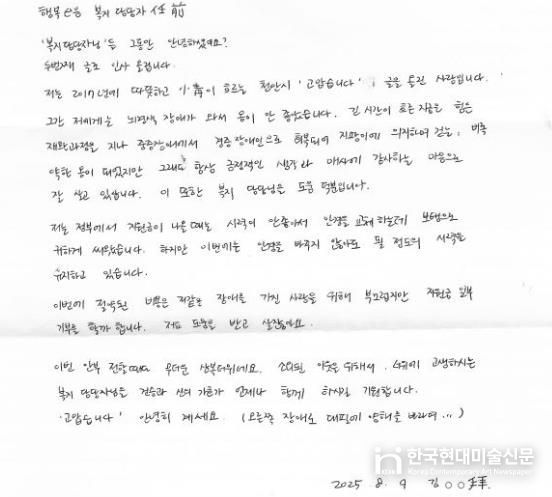 행복e음 복지 담당자 任前
'복지담당자님'들 그동안 안녕하셨어요?
두번째 글로 인사 올립니다.
저는 2017년에 따뜻하고 흐르는 천안시 '고맙습니다', 글을 올린 사람입니다.
그간 저에게는 뇌경색 장애가 와서 몸이 안 좋았습니다. 긴 시간이 흐른 지금은 힘든
재활과정을 지나 중증장애에서 경증장애인으로 회복되어 지팡이에 의지하여 걷는, 비록
약한 몸이 되었지만 그래도 항상 긍정적인 생각과 매사에 감사하는 마음으로
잘 살고 있습니다. 이 또한 복지 담당님들 도움 덕분입니다.
저는 정부에서 지원금이 나올때는 시력이 안좋아서 안경을 교체 하는데 보탬으로
귀하게 써왔습니다. 하지만 이번에는 안경을 바꾸지 않아도 될 정도의 시력을
유지하고 있습니다.
이번에 절약된 비용은 저같은 장애를 가진 사람을 위해 부끄럽지만 지원금 일부
기부를 할까 합니다. 저도 도움을 받고 살잖아요.
이번 안부 전할때는 무더운 삼복더위네요. 소외된 이웃을 위해서, 고생하시는
복지 담당자님들 건승과 신의 가호가 언제나 함께 하시길 기원합니다.
'고맙습니다' 안녕히 계세요. (오른쪽 장애로 대필에 양해를 바라며...)
2025 8. 9 김○○拜.
한국현대미술신문
Korea Contemporary Art Newspaper